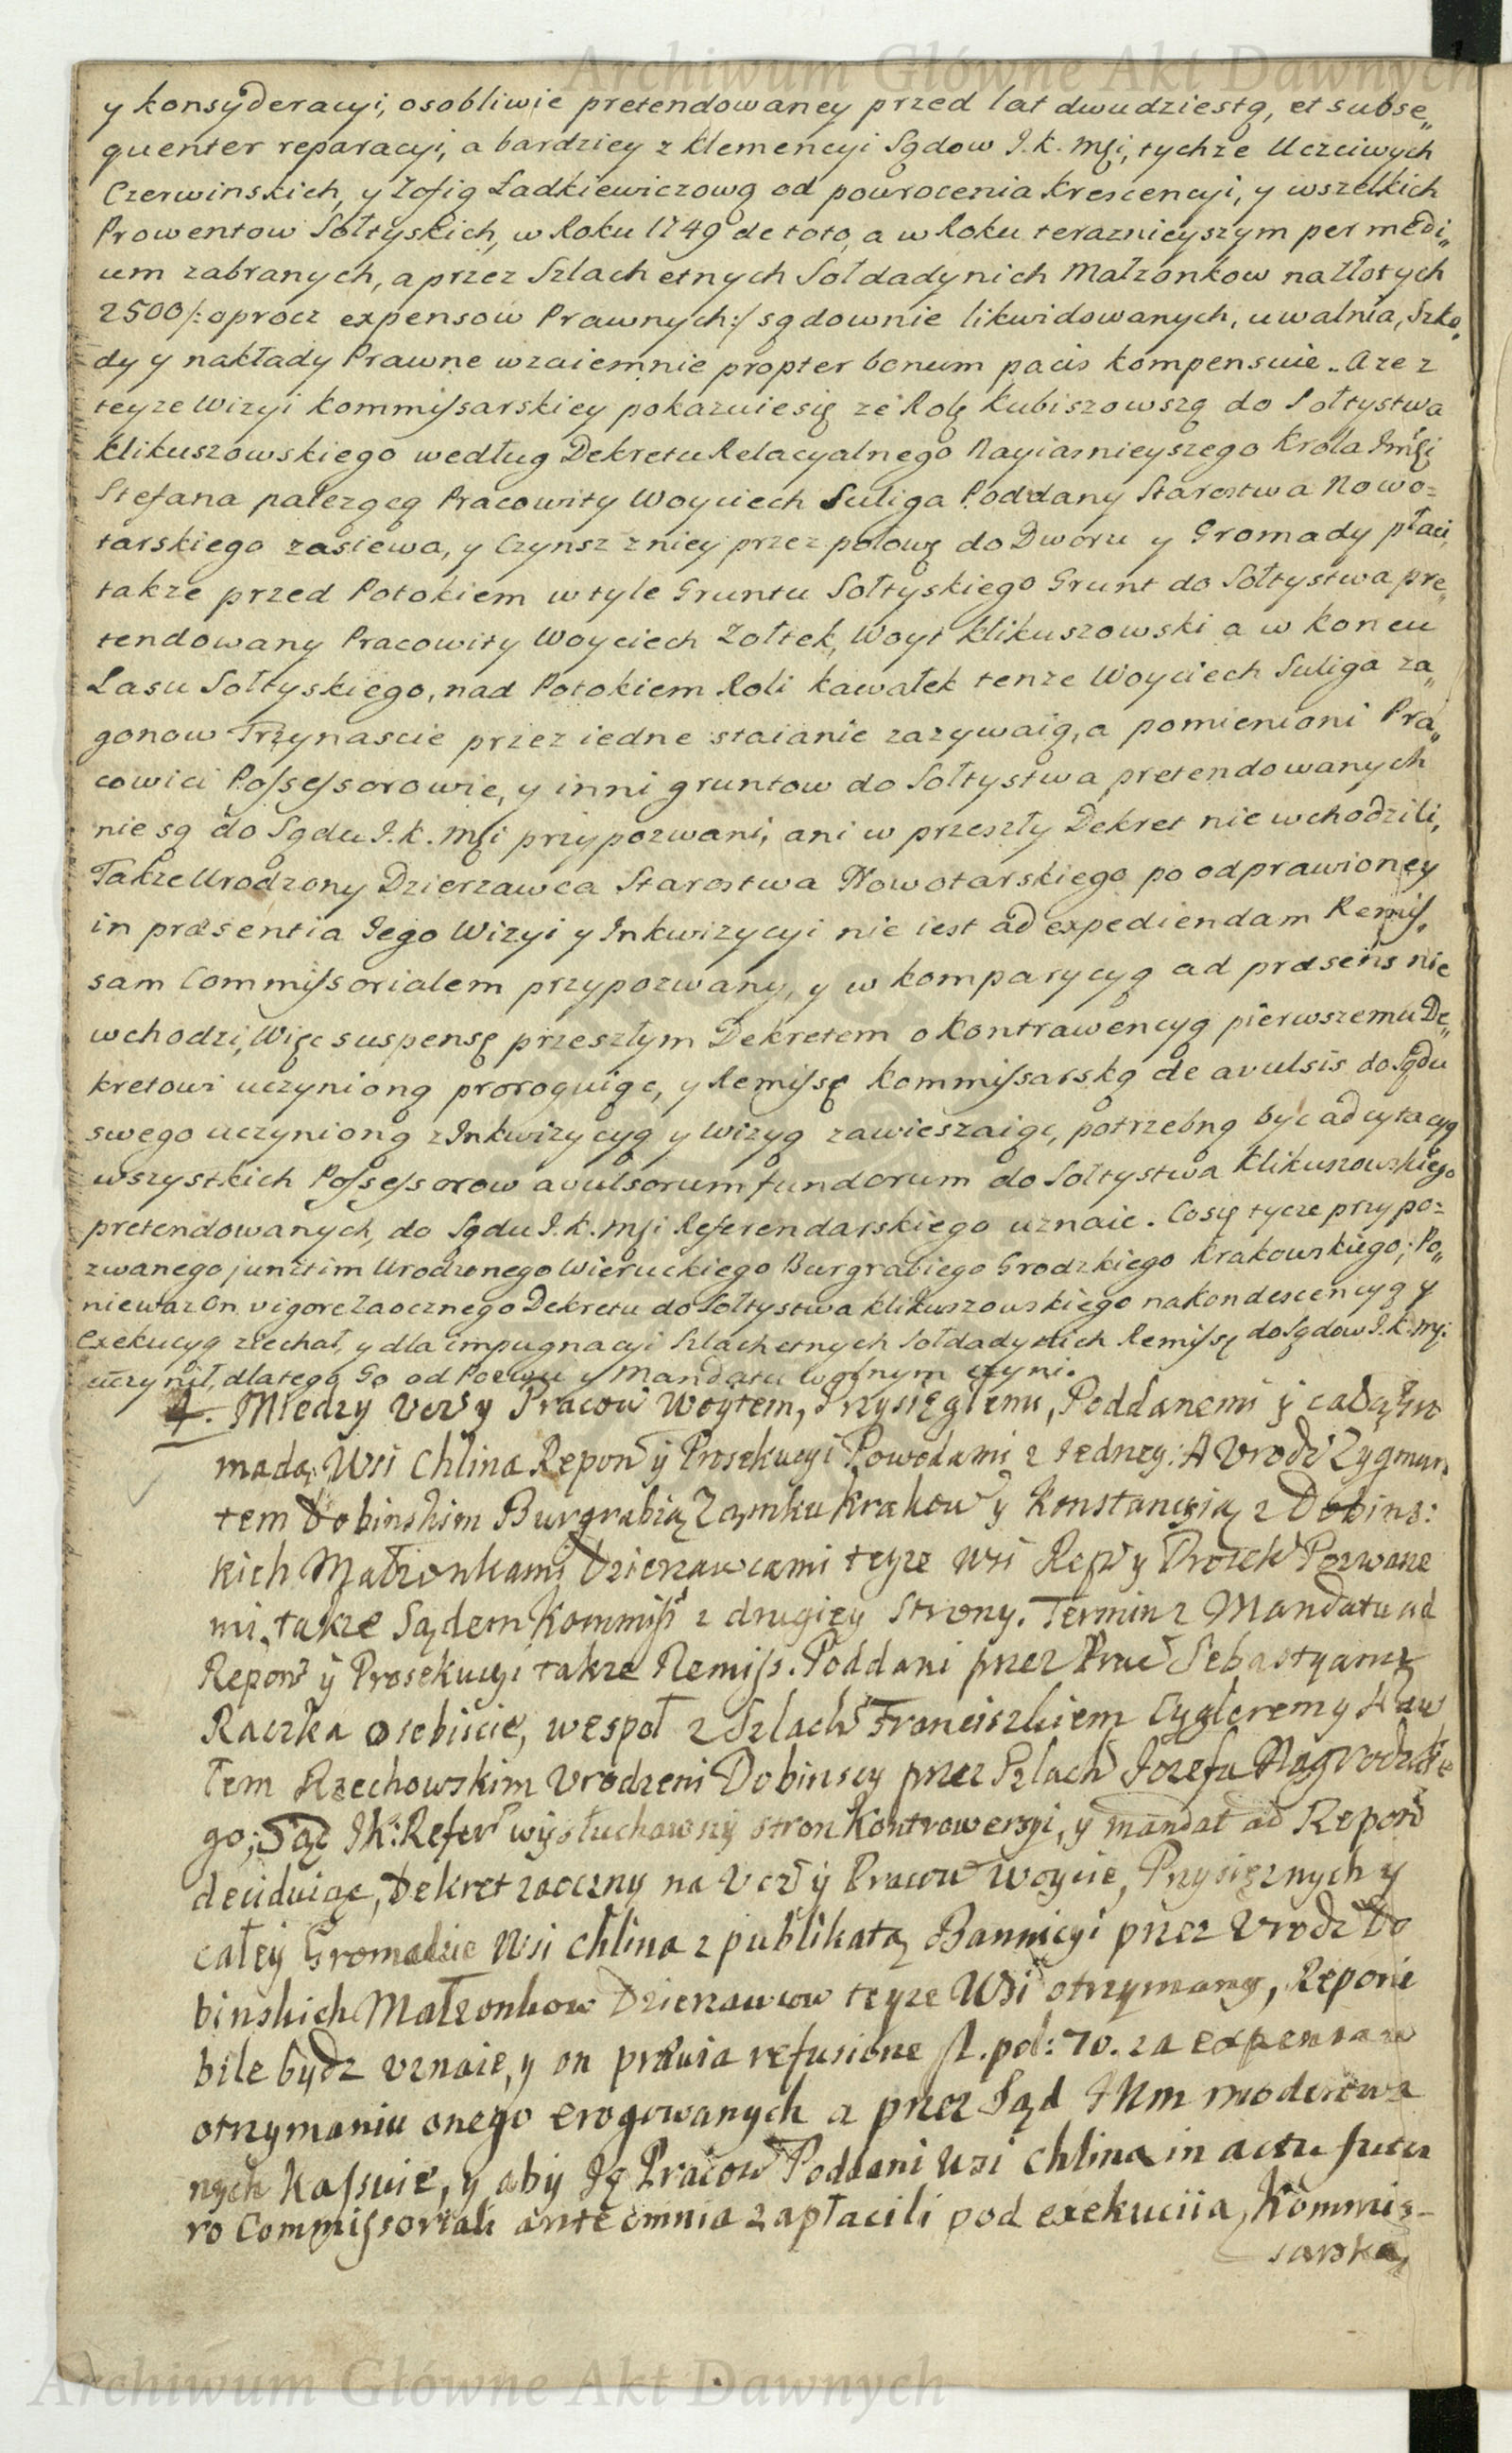 Archiwum Główne Akt Dawnych
y konsyderacyi, osobliwie pretendowaney przed lat dwudziestą, et subse„
quenter reparacyi, a bardziey z klemencyi Sądow J. k. Mśi, tychże Uczciwych
Czerwinskich, y Zofią Ladkiewiczową od powrocenia krescencyi, y wszelkich
Prowentow Sołtyskich, w Roku 1749 de toto, a w Roku teraznieyszym per medi„
um zabranych, a przez Szlachetnych Sołdadynich Małzonkow na Złotych
2500/: oprocz expensow Prawnych:/ sądownie likwidowanych, uwalnia, Szko„
dy y nakłady Prawne wzaiemnie propter bonum pacis kompensuie. A ze z
teyze Wizyi kommissarskiey pokazuie się ze Rolę Kubiszowszą do Sołtystwa
Klikuszowskiego według Dekretu Relacyalnego Nayiasnieyszego Krola Jmśi
Stefana nalezącą Pracowity Woyciech Suliga Poddany Starostwa Nowo=
tarskiego zasiewa, y Czynsz z niey przez połowę do Dworu y Gromady płaci,
takze przed Potokiem w tyle Gruntu Sołtyskiego Grunt do Sołtystwa pre„
tendowany Pracowity Woyciech Zołtek, Woyt Klikuszowski a w koncu
Lasu Sołtyskiego, nad Potokiem Roli kawałek tenze Woyciech Suliga za„
gonow Trzynascie przez iedne staianie zazywaią, a pomienioni Pra„
cowici Possessorowie, y inni gruntow do Sołtystwa pretendowanych
nie są do Sądu J. k. Mśi przypozwani, ani w przeszły Dekret nie wchodzili,
Takze Urodzony Dzierzawca Starostwa Nowotarskiego po odprawioney
in præsentia Jego Wizyi y Inkwizycyi nie iest ad expediendam Remis„
sam Commissorialem przypozwany, y w komparycyą ad præsens nie
wchodzi, Więc suspensę przeszłym Dekretem o kontrawencyą pierwszemu De„
kretowi uczynioną proroguiąc, y Remissę kommissarską de avulsis do Sądu
swego uczynioną z Inkwizycyą y Wizyą zawieszaiąc, potrzebną byc adcytacyą
wszystkich Possessorow avulsorum fundorum do Sołtystwa Klikuszowskiego
pretendowanych, do Sądu J. k. Mśi Referendarskiego uznaie. Co się tycze przypo=
zwanego junctim Urodzonego Wieruckiego Burgrabiego Grodzkiego Krakowskiego; Po„
niewaz On vigore Zaocznego Dekretu do Sołtystwa Klikuszowskiego na kondescencyą y
Exekucyą ziechał, y dla impugnacyi Szlachetnych Sołdadynich Remissę do Sądow J. k. Mśi
uczynił, dlatego Go od Pozwu y Mandatu wolnym czyni.
4. Miedzy Ucz y Pracow Woytem, Przysięgłemi, Poddanemi y całą Gro
madą Wsi Chlina Repon y Prosekucyi Powodami z Iedney: A Vrodz Zygmun
tem Dobinskim Burgrabią Zamku Krakow y Konstancyią z Dobins:
kich Małzonkami Dzierzawcami teyze Wsi Rep y Prosek Pozwane
mi, takze Sądem Kommiss z drugiey Strony. Termin z Mandatu ad
Repon y Prosekucyi takze Remiss. Poddani przez Prac Sebastyana
Raczka osobiscie, wespoł z Szlach Franciszkiem Cyglerem y Paw
łem Rzechowskim Vrodzeni Dobinscy przez Szlach Jozefa Nagrodzkie
go; Sąd JK: Refer wysłuchawszy stron Kontrowersyi, y mandat ad Repon
deciduiąc, Dekret zaoczny na Vcz y Pracow Woycie, Przysięznych y
całey Gromadzie Wsi Chlina z publikatą Bannicyi przez Vrodz Do
binskich Małzonkow Dzierzawcow teyze Wsi otrzymany, Reponi
bile bydz vznaie, y on prævia refusione fl. pol: 70. za expensa w
otrzymaniu onego erogowanych a przez Sąd JKm moderowa
nych Kassuie, y aby Ią Pracow Poddani Wsi Chlina in actu futu
ro Commissoriali ante omnia zapłacili pod exekuciia, Kommis-
sarską
Archiwum Główne Akt Dawnych